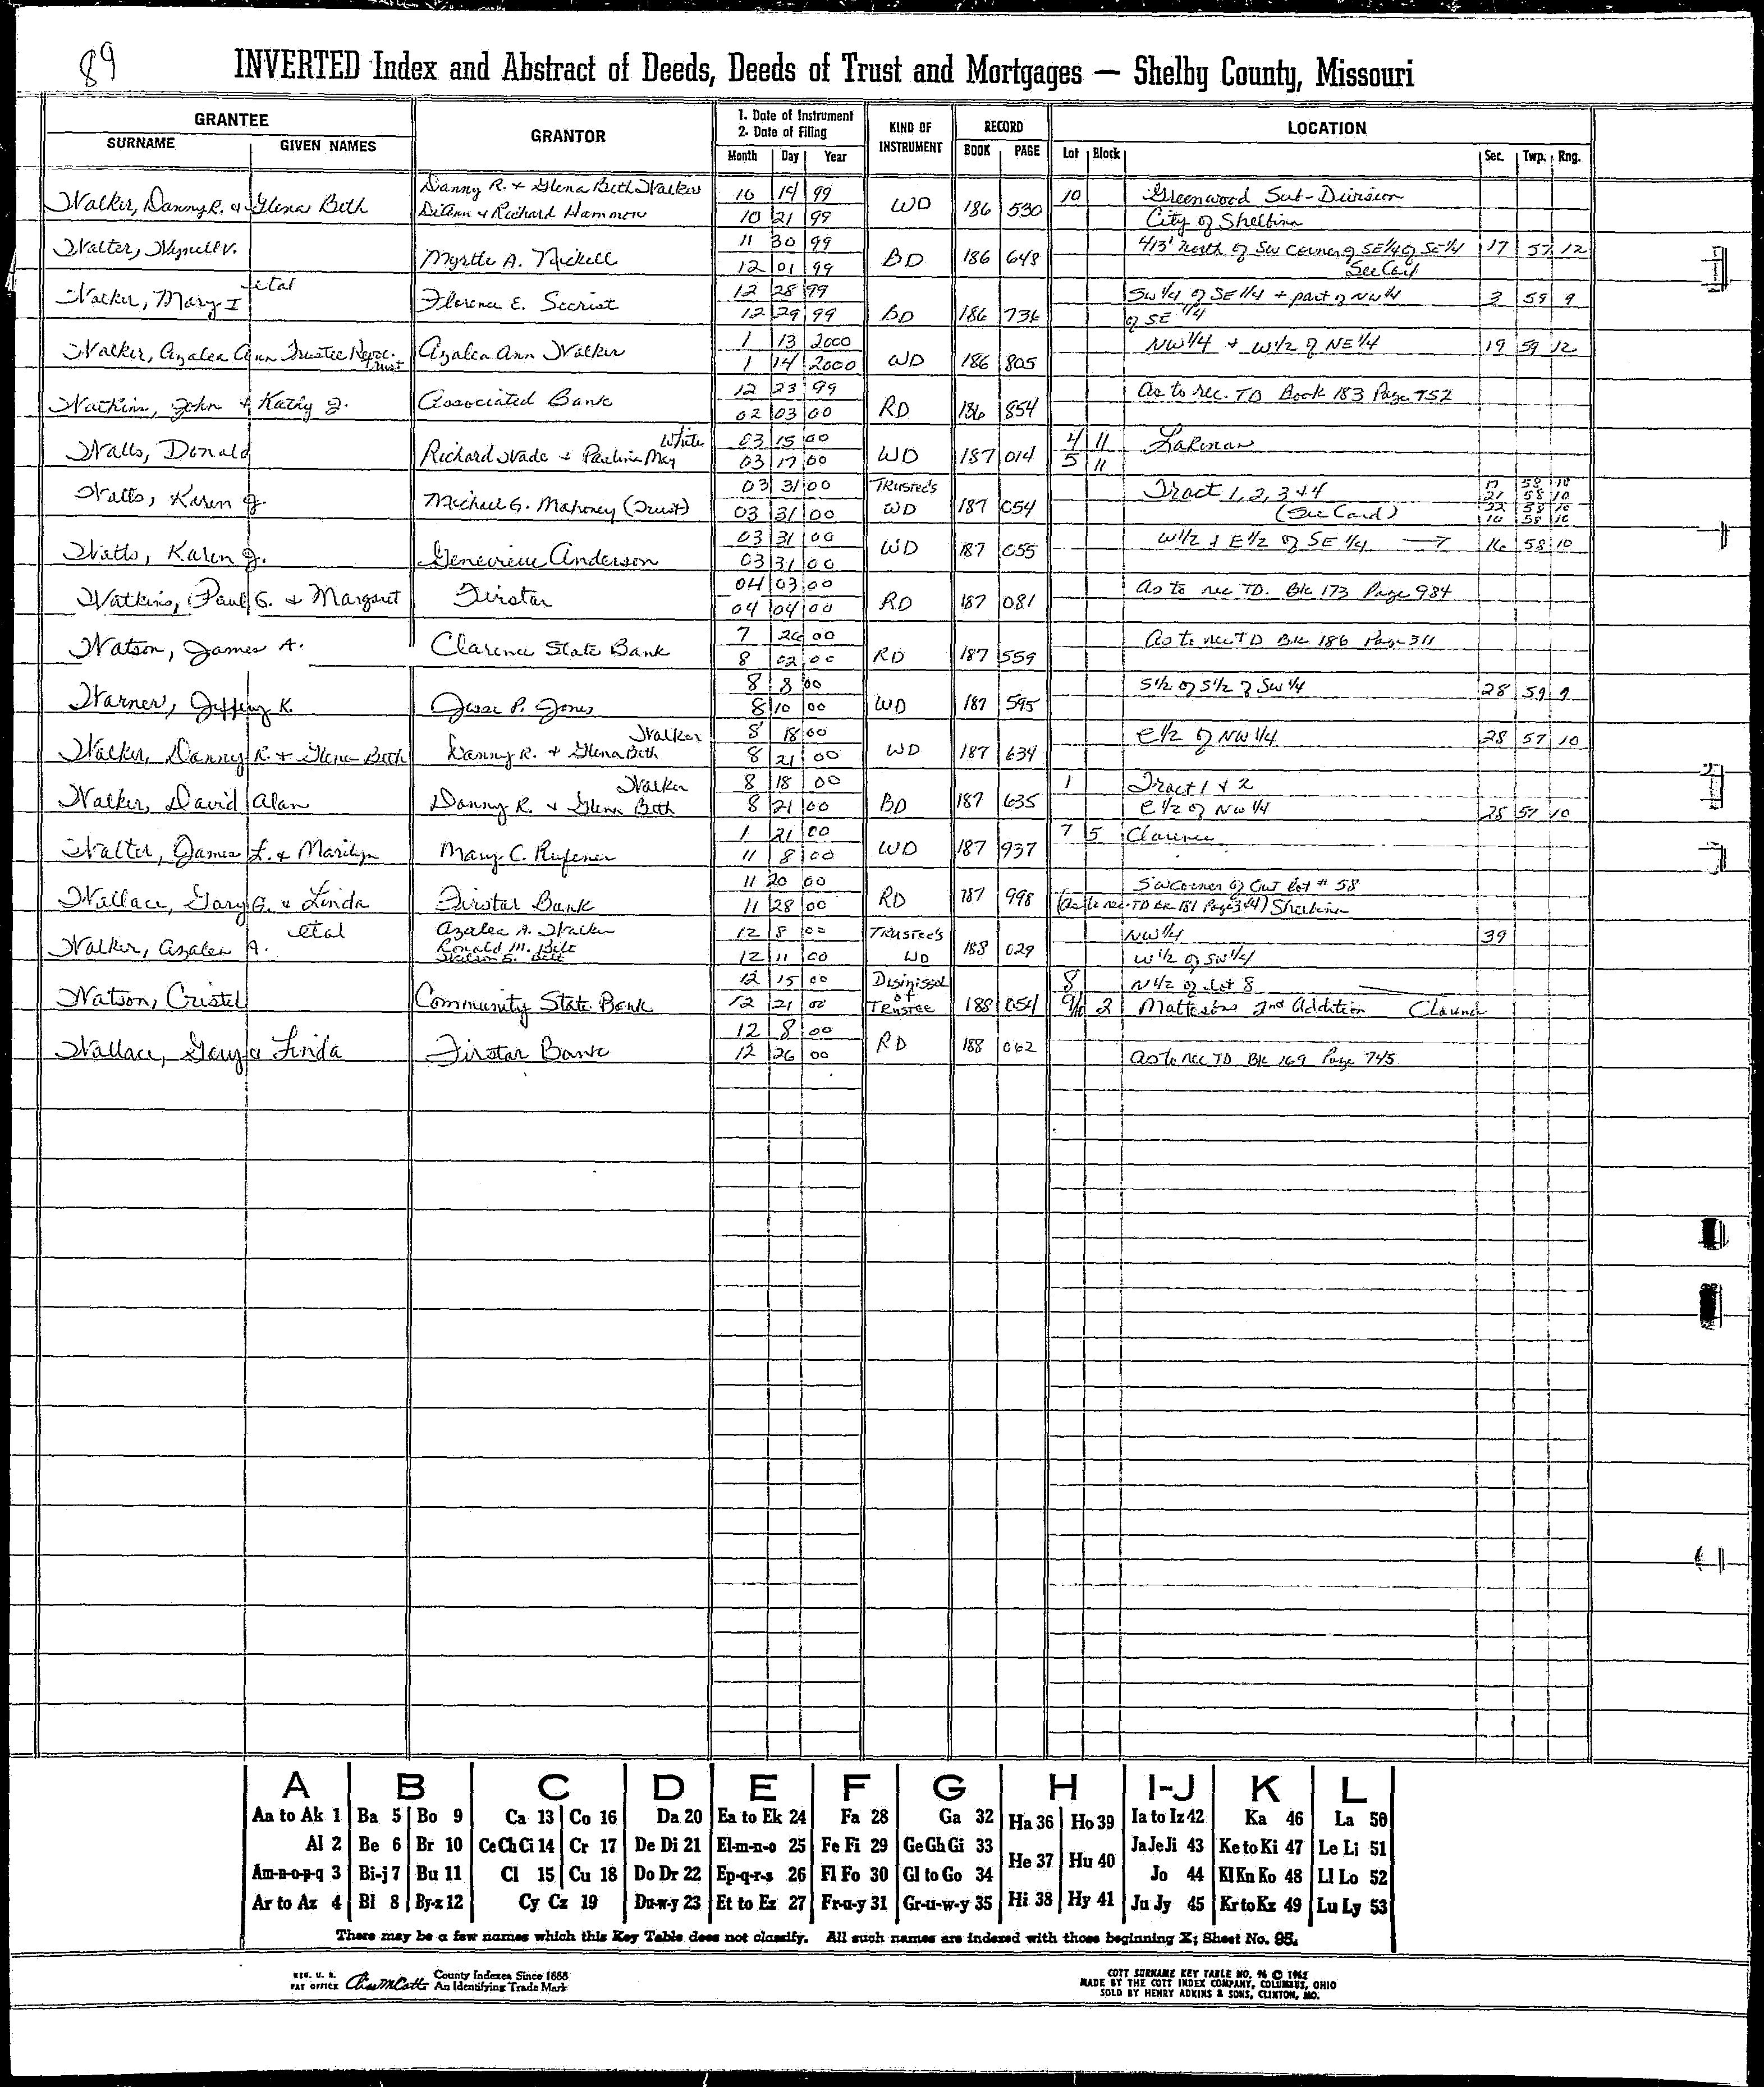 89
INVERTED Index and Abstract of Deeds, Deeds of Trust and Mortgages — Shelby County, Missouri
GRANTEE
SURNAME GIVEN NAMES
GRANTOR
1. Date of Instrument
2. Date of Filing
Month Day Year
KIND OF INSTRUMENT
RECORD
BOOK PAGE
LOCATION
Lot Block Sec. Twp. Rng.
Walker, Danny R. & Glena Beth Danny R. + Glena Beth Walker 10 14 99 WD 186 530 10 Greenwood Sub-Division
DiAnn & Richard Hammon 10 21 99 City of Shelbina
Walter, V. Myrtle A. Nickell 11 30 99 BD 186 648 413' North of SW Corner of SE 1/4 of SE 1/4 17 57 12
12 01 99 See Card
Walker, Mary I etal Florence E. Secrist 12 28 99 BD 186 736 SW 1/4 of SE 1/4 + part of NW 1/4 3 59 9
12 29 99 of SE 1/4
Walker, Azalea Ann Trustee Trust Azalea Ann Walker 1 13 2000 WD 186 805 NW 1/4 + W 1/2 of NE 1/4 19 59 12
1 14 2000
Watkins, John & Kathy J. Associated Bank 12 23 99 RD 186 854 As to rec. TD Book 183 Page 752
02 03 00
Watts, Donald Richard Wade & Pauline May White 03 15 00 WD 187 014 4 11 Lakenan
03 17 00 5 11
Watts, Karen J. Michael G. Mahoney (Trust) 03 31 00 Trustee's WD 187 054 Tract 1, 2, 3 & 4 17 58 10
21 58 10
03 31 00 (See Card) 22 58 10
16 58 10
Watts, Karen J. Genevieve Anderson 03 31 00 WD 187 055 W 1/2 & E 1/2 of SE 1/4 16 58 10
03 31 00
Watkins, Paul G. & Margaret Firstar 04 03 00 RD 187 081 As to rec TD. Bk 173 Page 984
04 04 00
Watson, James A. Clarence State Bank 7 26 00 RD 187 559 As to rec TD Bk 186 Page 311
8 02 00
Warner, Jeffery K. Jesse P. Jones 8 8 00 WD 187 595 S 1/2 of S 1/2 of SW 1/4 28 59 9
8 10 00
Walker, Danny R. & Glena Beth Danny R. & Glena Beth Walker 8 18 00 WD 187 634 E 1/2 of NW 1/4 28 57 10
8 21 00
Walker, David Alan Danny R. & Glena Beth Walker 8 18 00 BD 187 635 1 Tract 1 & 2
8 21 00 E 1/2 of NW 1/4 28 57 10
Walter, James L. & Marilyn Mary C. Rufener 1 21 00 WD 187 937 7 5 Clarence
11 8 00
Wallace, Gary G. & Linda Firstar Bank 11 20 00 RD 187 998 SW corner of Out lot # 58
11 28 00 (as to rec TD Bk 181 Page 344) Shelbina
Walker, Azalea A. etal Azalea A. Walker 12 8 00 Trustee's WD 188 029 NW 1/4 39
Ronald M. Belt
12 11 00 W 1/2 of SW 1/4
Watson, Cristel Community State Bank 12 15 00 Dismissal of Trustee 188 054 8 N 1/2 of Lot 8
12 21 00 9/10 2 Matteson 2nd Addition Clarence
Wallace, Gary & Linda Firstar Bank 12 8 00 RD 188 062
12 26 00 As to rec TD Bk 169 Page 745
A B C D E F G H I-J K L
Aa to Ak 1 Ba 5 Bo 9 Ca 13 Co 16 Da 20 Ea to Ek 24 Fa 28 Ga 32 Ha 36 Ho 39 Ia to Iz 42 Ka 46 La 50
Al 2 Be 6 Br 10 Ce Ch Ci 14 Cr 17 De Di 21 El-m-n-o 25 Fe Fi 29 Ge Gh Gi 33 He 37 Hu 40 Ja Je Ji 43 Ke to Ki 47 Le Li 51
Am-n-o-p-q 3 Bi-j 7 Bu 11 Cl 15 Cu 18 Do Dr 22 Ep-q-r-s 26 Fl Fo 30 Gl to Go 34 Jo 44 Kl Kn Ko 48 Ll Lo 52
Ar to Az 4 Bl 8 By-z 12 Cy Cz 19 Du-w-y 23 Et to Ez 27 Fr-u-y 31 Gr-u-w-y 35 Hi 38 Hy 41 Ju Jy 45 Kr to Kz 49 Lu Ly 53
There may be a few names which this Key Table does not classify. All such names are indexed with those beginning X; Sheet No. 95.
REG. U. S. PAT OFFICE County Indexes Since 1888
An Identifying Trade Mark
COTT SURNAME KEY TABLE NO. 96 © 1962
MADE BY THE COTT INDEX COMPANY, COLUMBUS, OHIO
SOLD BY HENRY ADKINS & SONS, CLINTON, MO.